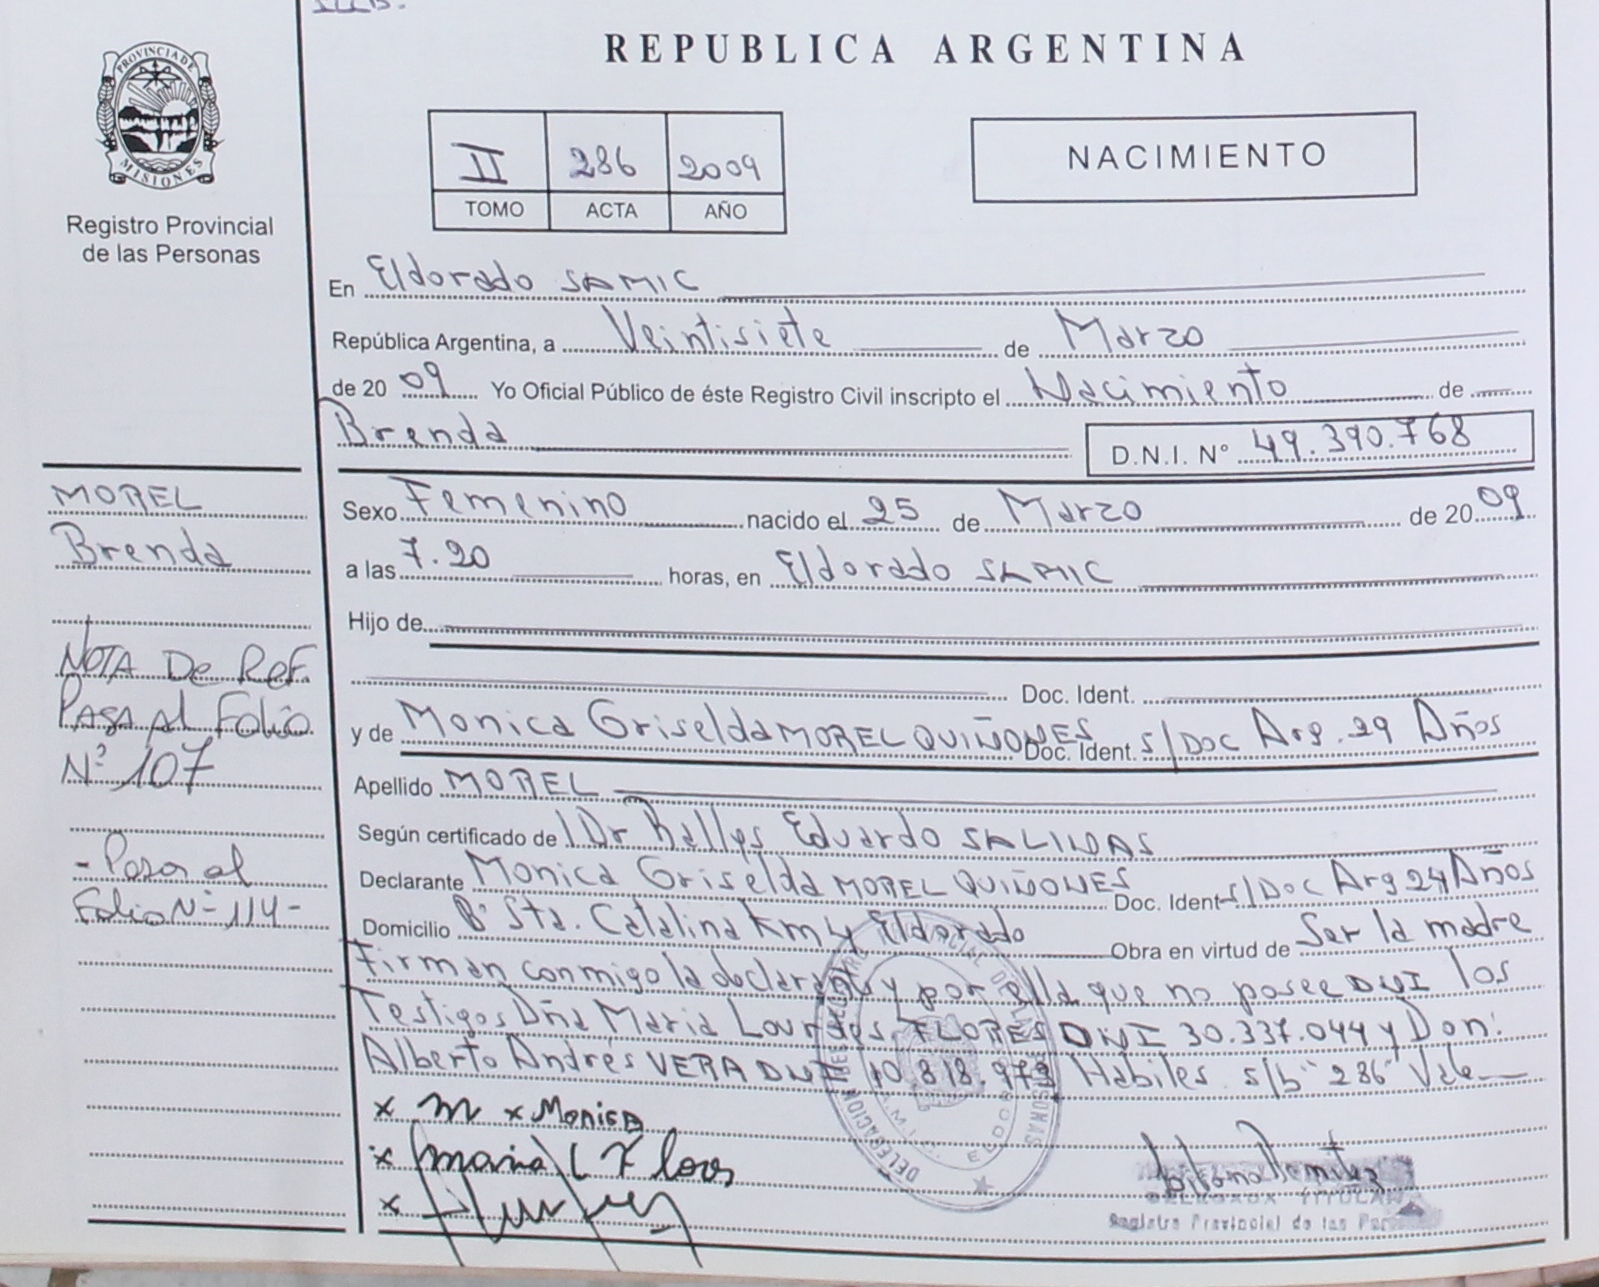 REPUBLICA ARGENTINA
PROVINCIA DE
MISIONES
Registro Provincial
de las Personas
II 286 2009
TOMO ACTA AÑO
NACIMIENTO
En Eldorado SAMIC
República Argentina, a Veintisiete de Marzo
de 2009 Yo Oficial Público de éste Registro Civil inscripto el Nacimiento de
Brenda D.N.I. N° 49.390.768
Sexo Femenino nacido el 25 de Marzo de 2009
a las 7.20 horas, en Eldorado SAMIC
Hijo de
Doc. Ident.
y de Monica Griselda MOREL QUIÑONES Doc. Ident. s/Doc Arg. 29 Años
Apellido MOREL
Según certificado de Dr Eduardo SALINAS
Declarante Monica Griselda MOREL QUIÑONES Doc. Ident s/Doc Arg 24 Años
Domicilio B° Sta. Catalina Km 4 Eldorado Obra en virtud de Ser la madre
Firman conmigo la declarante y por ella que no posee DNI los
Testigos Dña Maria Lourdes FLORES DNI 30.337.044 y Don:
Alberto Andrés VERA DNI 10.818.973 Habiles s/b "286" Vale
x m x Monica
x maria L Flores
x
DELEGACION
ELDORADO
TITULAR
Registro Provincial de las
MOREL
Brenda
NOTA De ReF.
PASA Al Folio
N° 107
- Pasa al
Folio N° 114 -